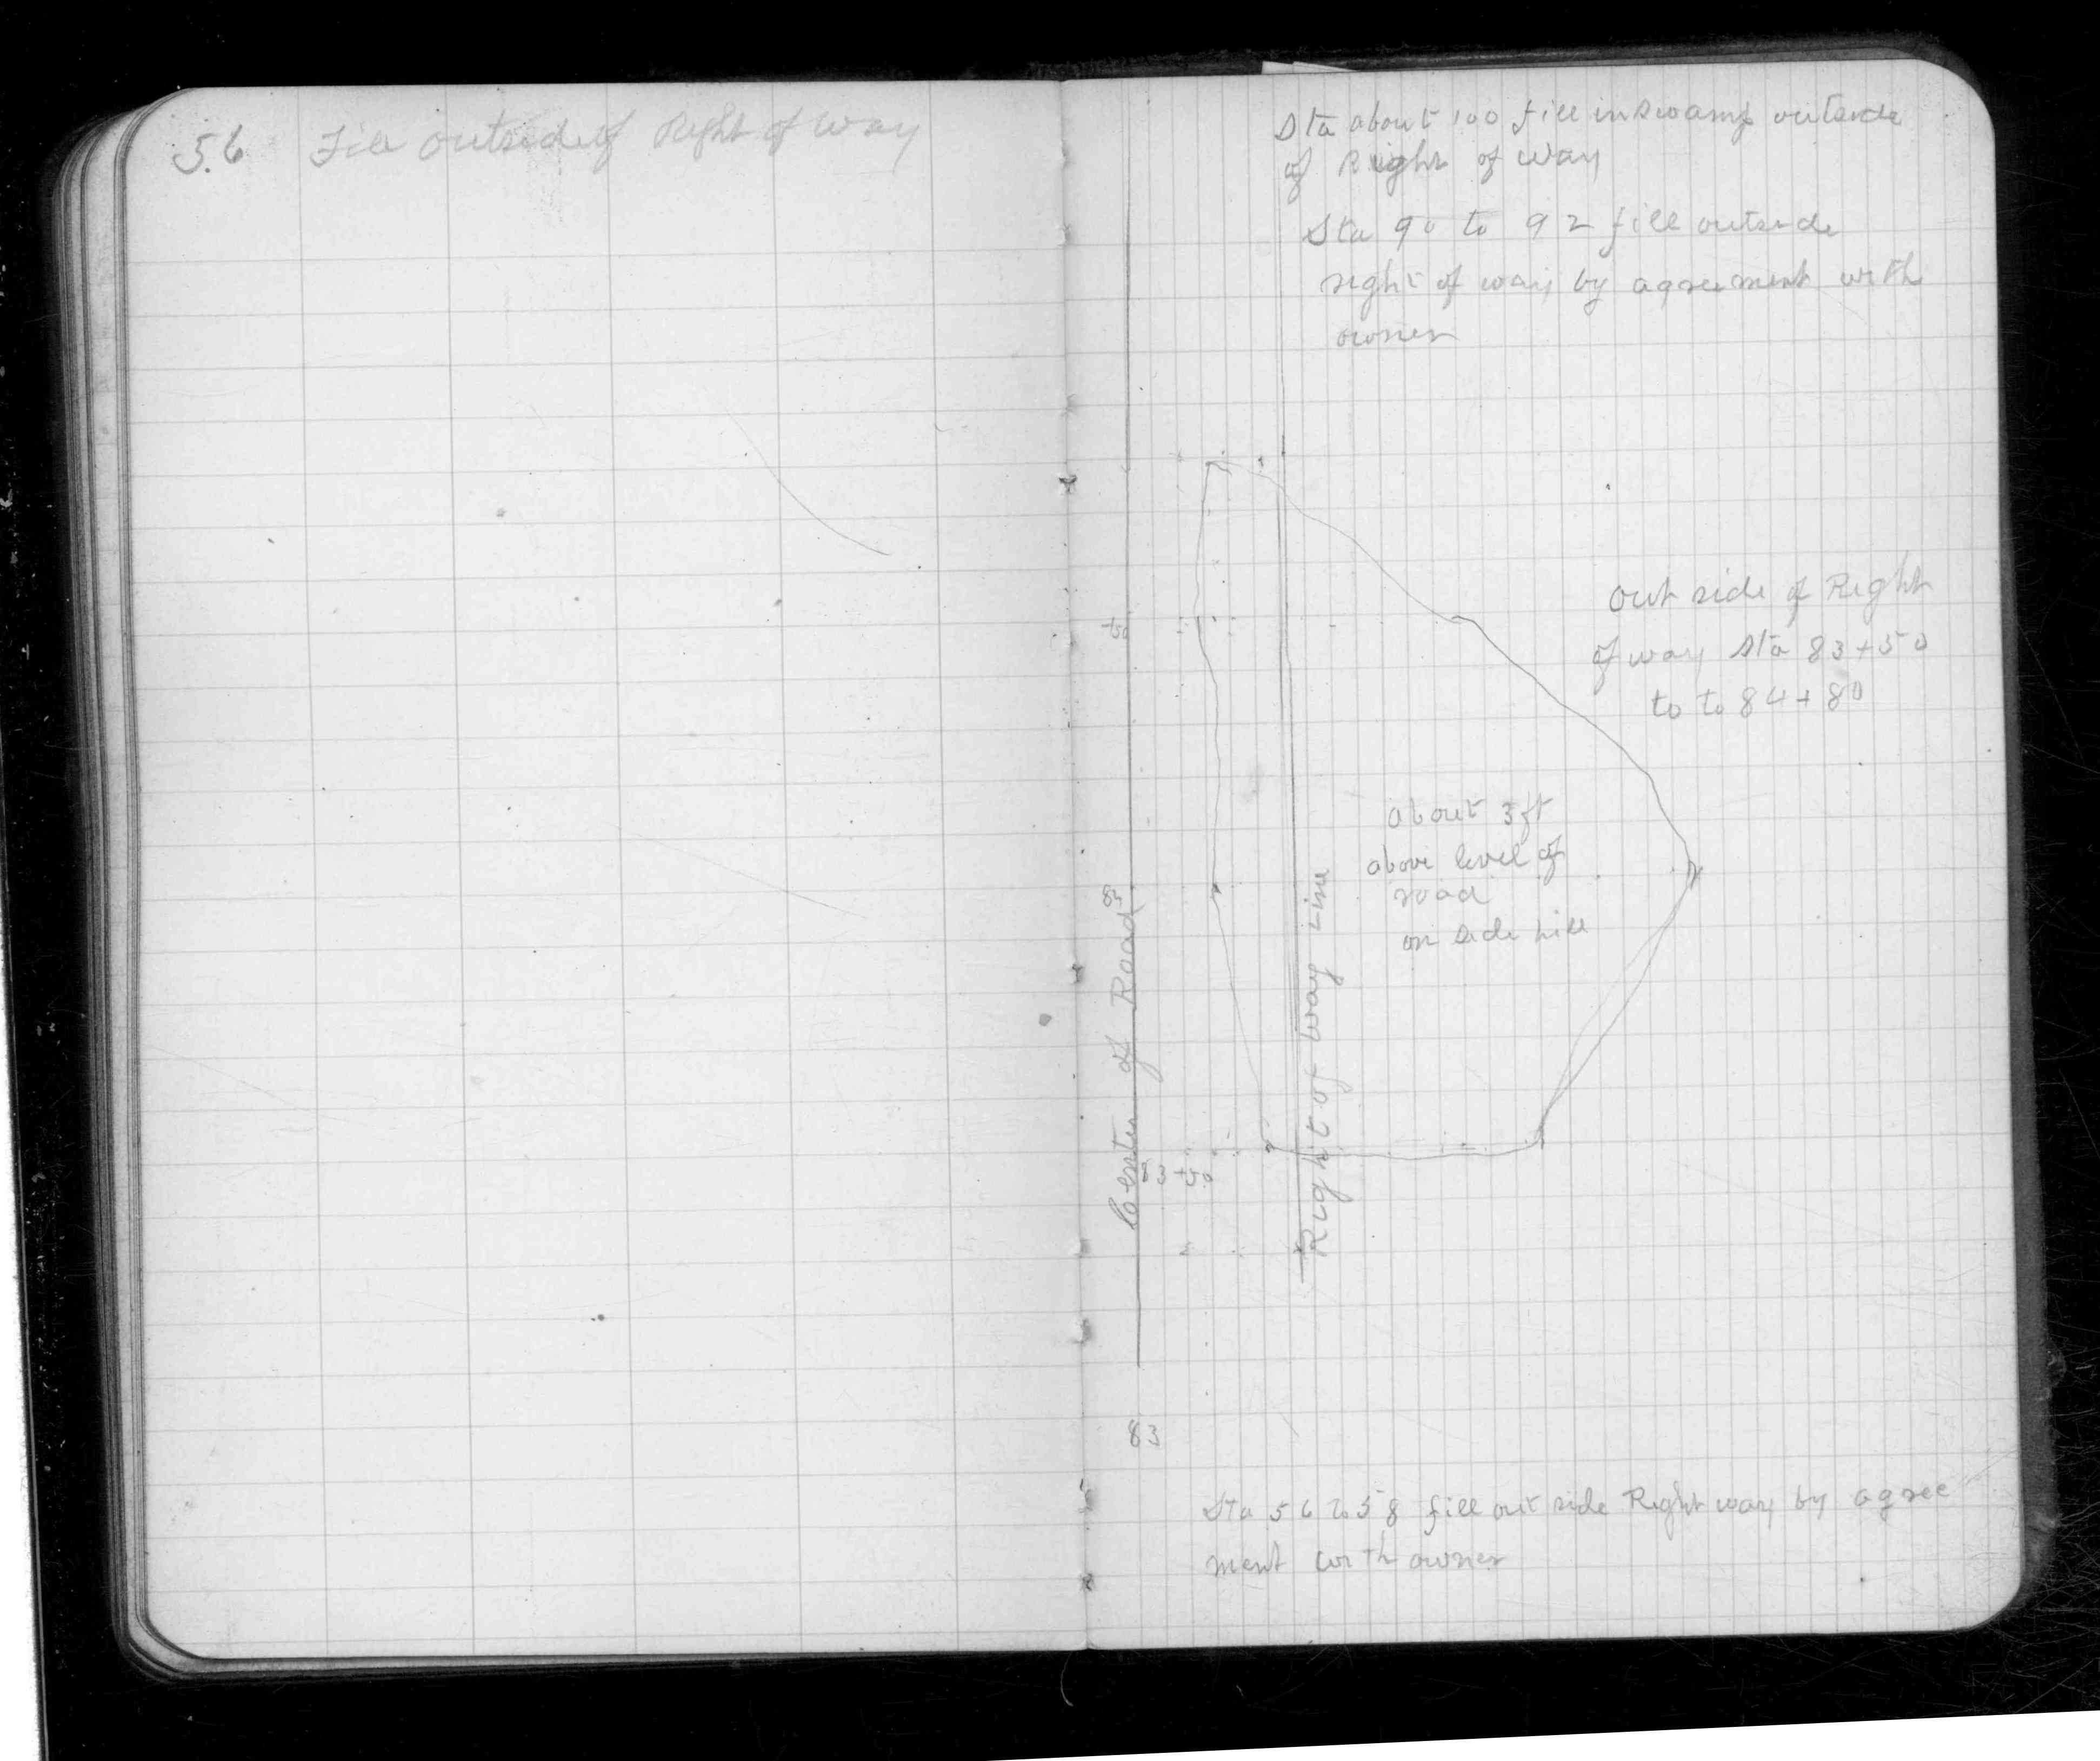 56 Fill outside of Right of Way
Sta about 100 fill in Swamp outside
of Right of Way
Sta 90 to 92 fill outside
right of way by agreement with
owner
+50
out side of Right
of way Sta 83+50
to to 84+80
about 3 ft
above level of
road
on side hill
Center of Road
Right of Way Line
83+50
83
Sta 56 to 58 fill out side Right way by agree
ment with owner